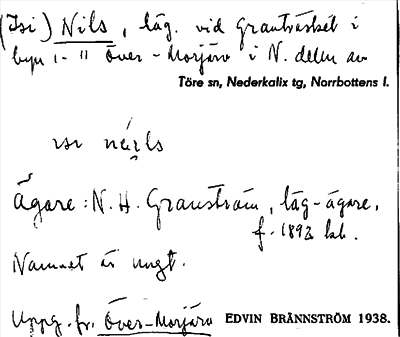 (Isi) Nils, läg. vid Granträsket i
byn I-II Över-Morjärv i N. delen av
Töre sn, Nederkalix tg, Norrbottens l.
ısı nä́ls
Ägare: N. H. Granström, läg-ägare,
f. 1893 
Namnet är ungt.
Uppg. fr. Över-Morjärv EDVIN BRÄNNSTRÖM 1938.